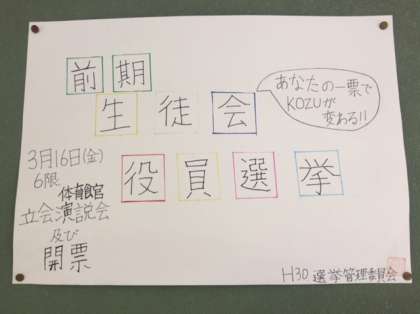 前期
生徒会
あなたの一票で
KOZUが
変わる!!
役員選挙
3月16日(金)
6限
体育館
立会演説会
及び
開票
H30 選挙管理委員会